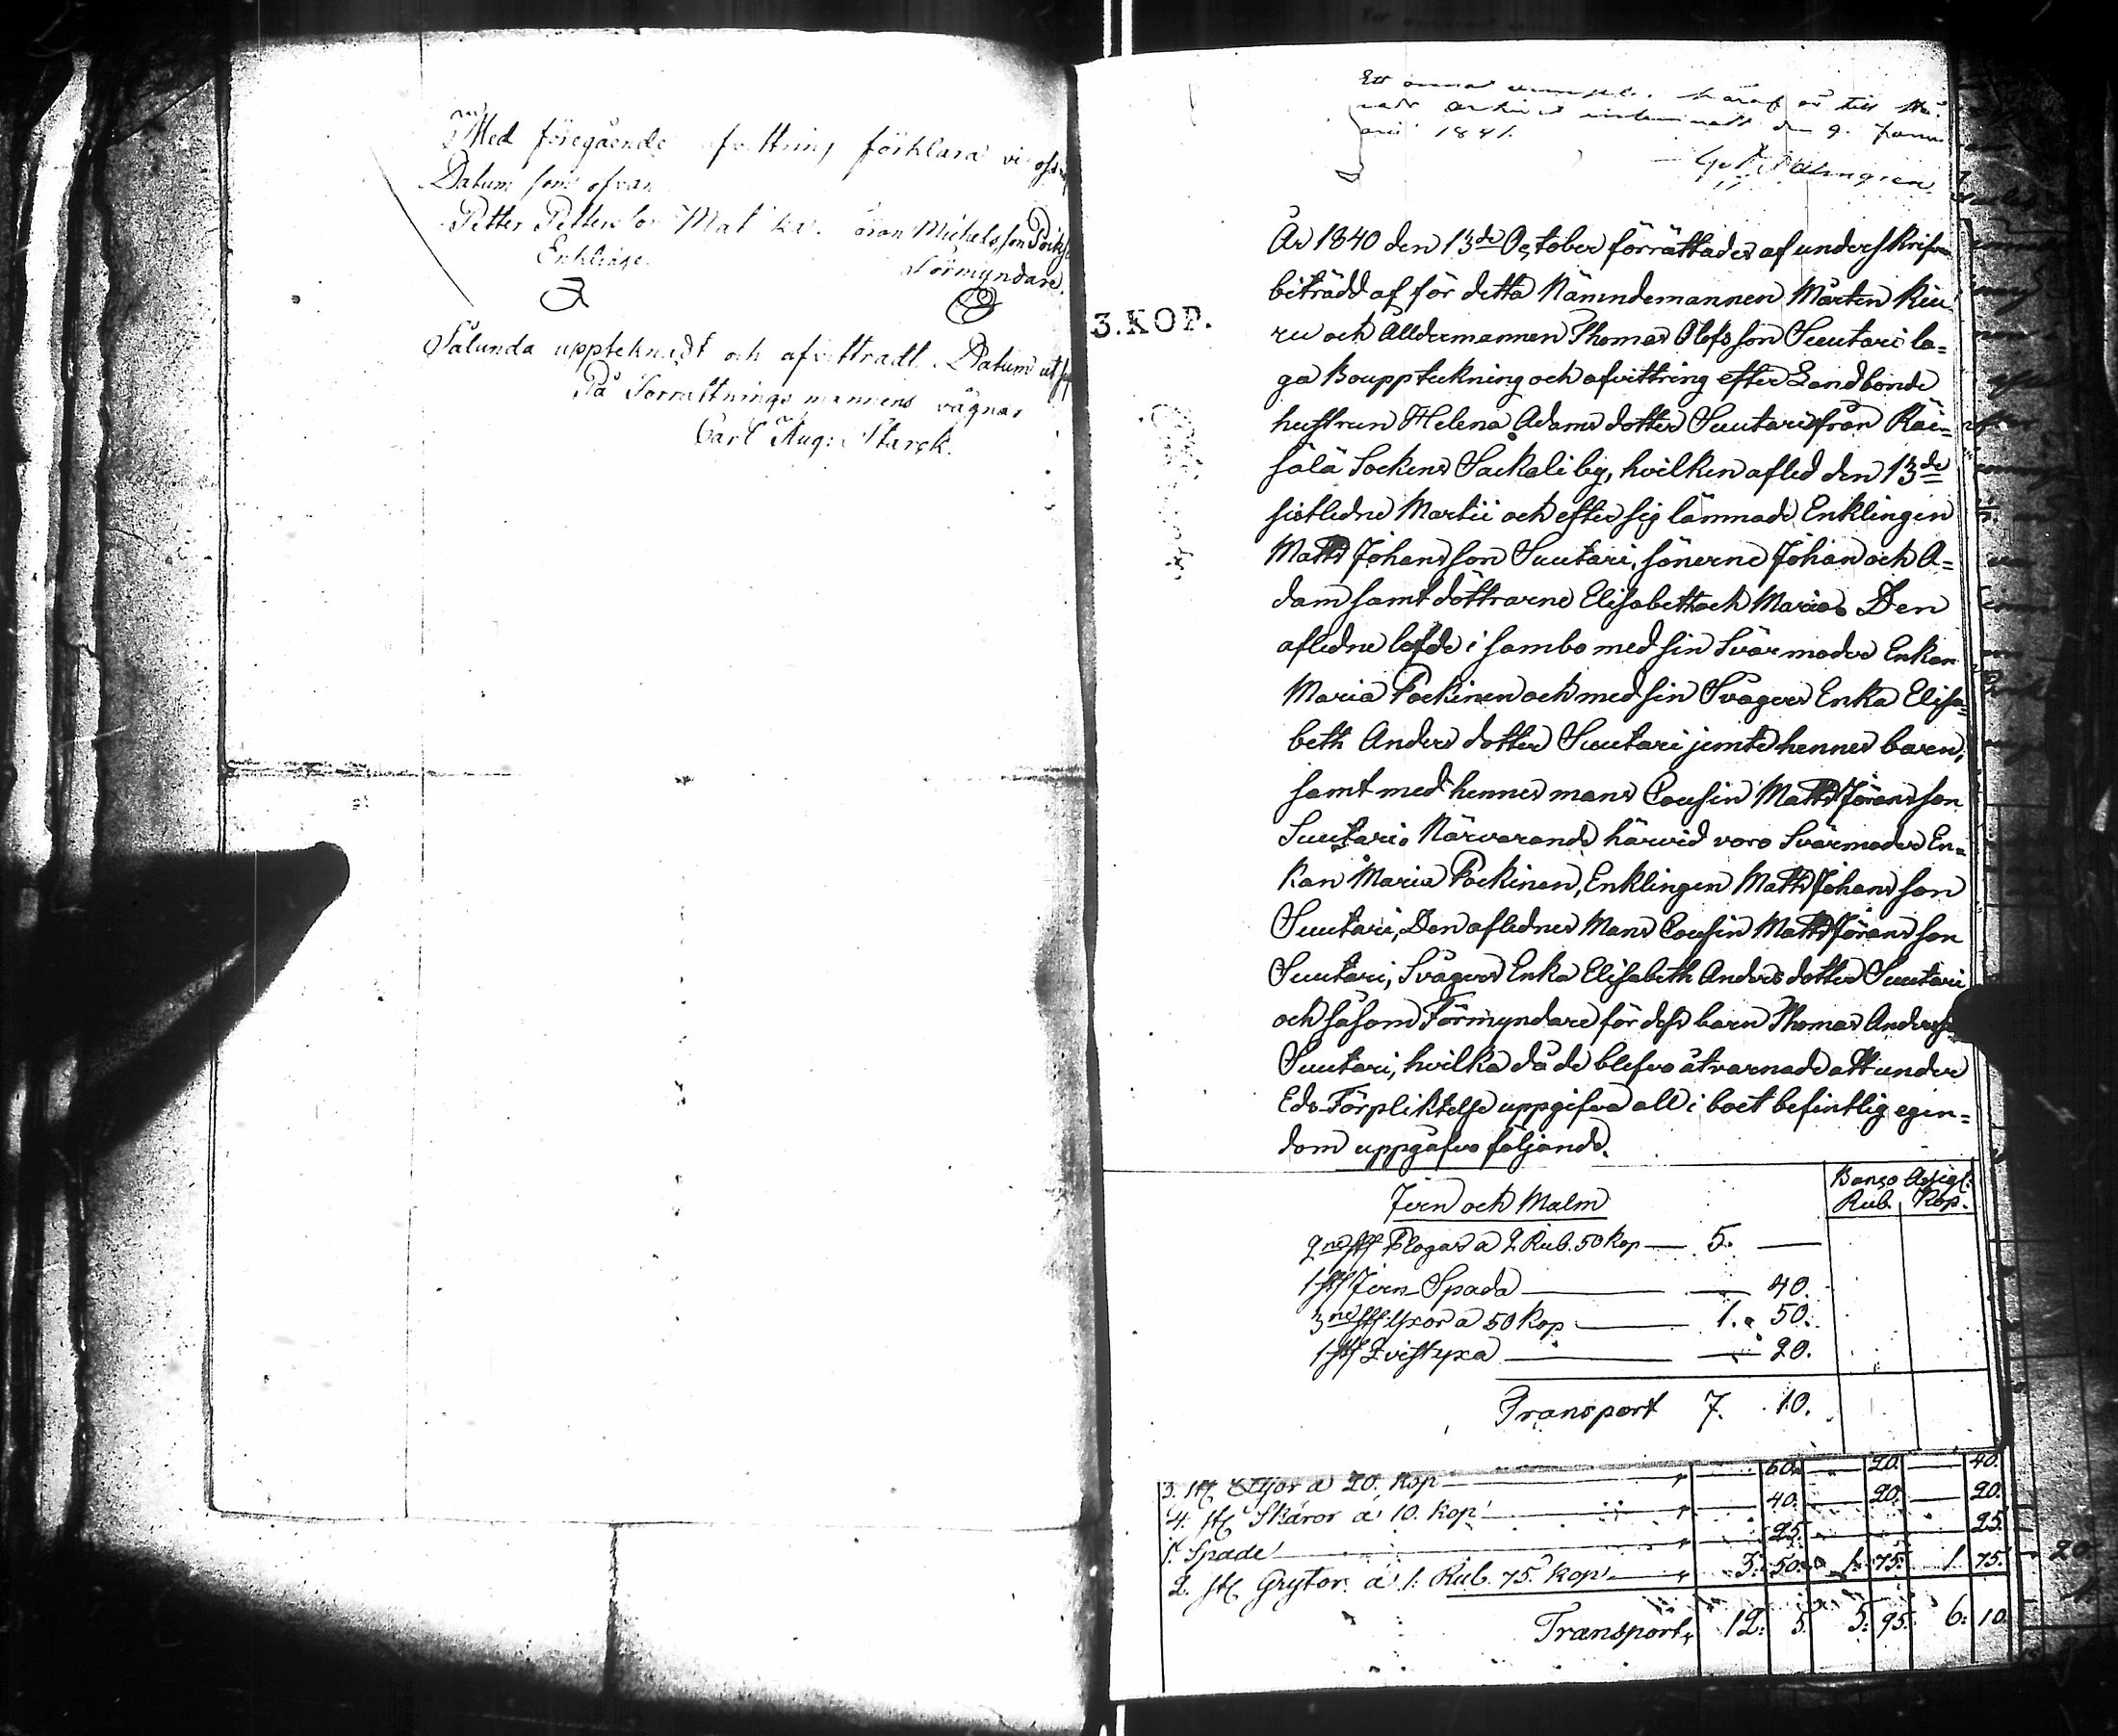 Med föregående afvittring förklara vi oss
Datum som ofvan
Petter Petterson Michelsson
Enklinge. Förmyndare.
Sålunda uppteknadt och afvittradt. Datum ut
På Förrättnings mannens vägnar
Carl Aug: Starck.
Ett annat häraf är till
den 9. Janu
arii 1841.
3.KOP.
År 1840 den 13de October förrättades af underskrifven
biträdd af för detta Nämndemannen Mårten Kiu
ru ochÅlldermannen Thomas Olofsson Suutari la=
ga Bouppteckning och afvittring efter Landbonde
hustrun Helena Adams dotter Suutari från Räi=
sälä Sockens Sackali by, hvilken afled den 13de
sistledne Martii och efter sig lämnade Enklingen
Matts Johansson Suutari, sönerne Johan och A=
dam samt döttrarne Elisabeth och Maria. Den
afledne lefde i sambo med sin Svärmoder Enkan
Maria Pockinen och med sin Svågers Enka Elisa=
beth Anders dotter Suutari jemte hennes barn,
samt med hennes mans Cousin Matts Jöransson
Suutari. Närvarande härvid voro Svärmoder En=
kan Maria Pockinen, Enklingen Matts Johansson
Suutari, Den aflednes Mans Cousin Matts Jöransson
Suutari, Svågers Enka Elisabeth Anders dotter Suutari
och såsom Förmyndare för dess barn Thomas Anders
Suutari, hvilka då de blefvo åtvarnade att under
Eds Förpliktelse uppgifva all i boet befintlig egen=
dom uppgåfvo följande.
Banco Assigt:
Jern och Malm Rub. Kop.
2ne st Plogar a 2 Rub. 50 Kop — 5. —
1 st Jern Spada — — 40.
3ne st Yxor a 50 Kop — 1. 50.
1 st Qvistyxa — — 20.
Transport 7. 10.
3. st a 20. Kop — 60. — 20. — 40.
4. st Skäror a 10. kop — 40. — 20. — 20.
1. Spade — 25. — 25.
2. st Grytor. a 1: Rub. 75. kop — 3: 50. 1: 75. 1. 75.
Transport, 12: 5. 5: 95. 6: 10.